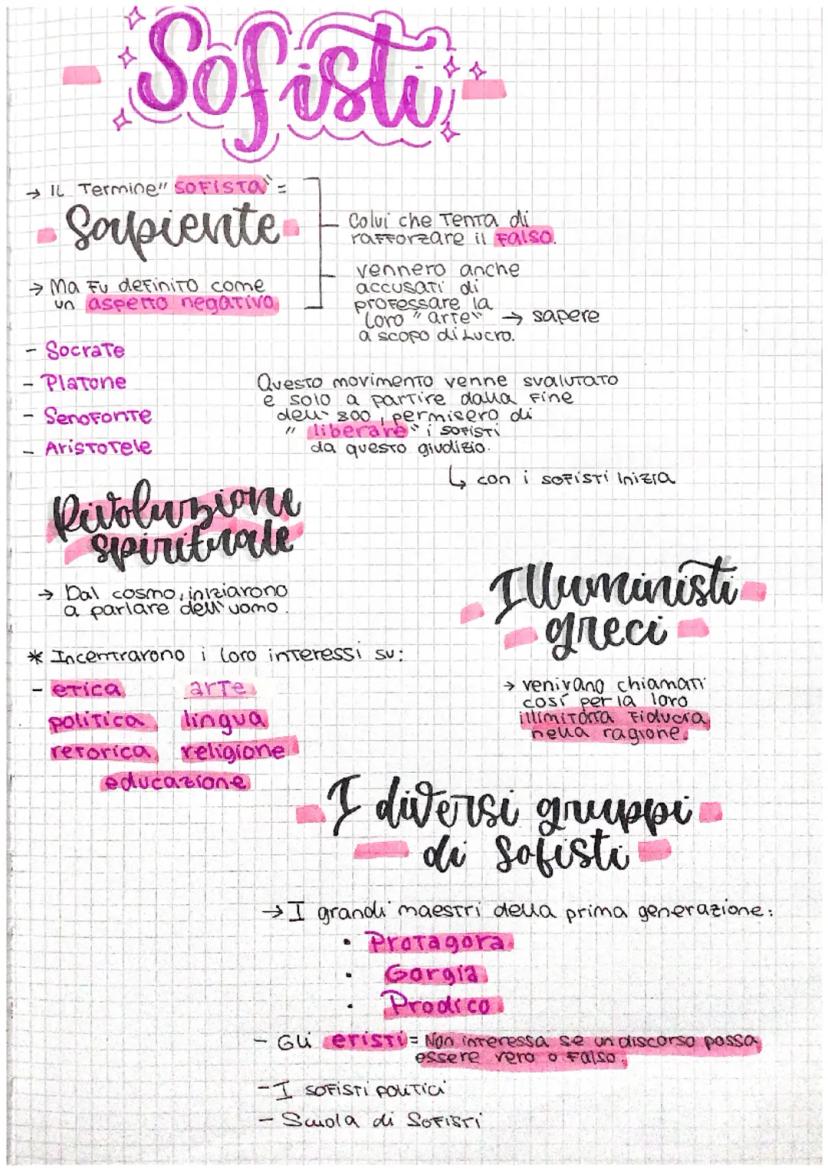 Sofisti
→ Il Termine "SOFISTA" =
Sapiente
→ Ma fu definito come
un aspetto negativo
Colui che Tenta di
rafforzare il Falso.
vennero anche
accusati di
professare la
loro "arte" → sapere
a scopo di Lucro.
- Socrate
- Platone
- Senofonte
- Aristotele
Questo movimento venne svalutato
e solo a partire dalla fine
dell' 800, permisero di
"liberare" i sofisti
da questo giudizio.
↳ con i sofisti inizia
Rivoluzione
spirituale
→ Dal cosmo, iniziarono
a parlare dell'uomo.
* Incentrarono i loro interessi su:
- etica arte
politica lingua
retorica religione
educazione
Illuministi
greci
→ venivano chiamati
così per la loro
illimitata fiducia
nella ragione.
I diversi gruppi
di Sofisti
→ I grandi maestri della prima generazione:
• Protagora
• Gorgia
• Prodico
- Gli eristi = Non interessa se un discorso possa
essere vero o falso.
- I sofisti politici
- Scuola di Sofisti